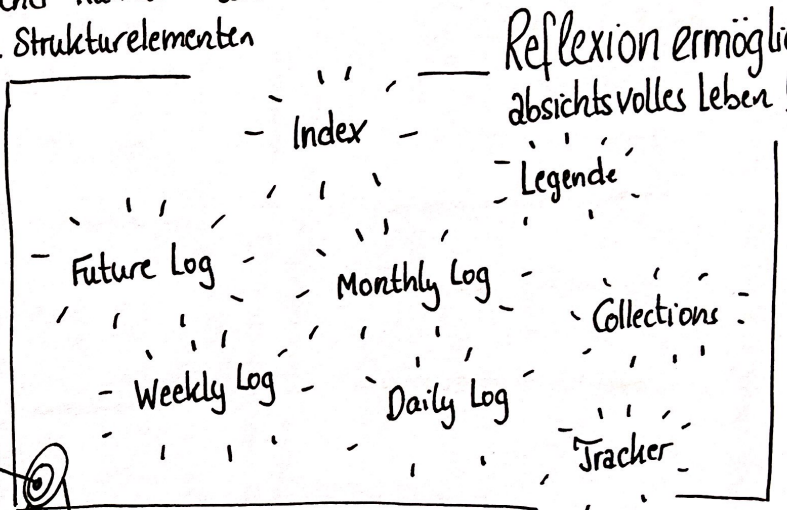 . Strukturelementen
Reflexion ermögli
absichtsvolles Leben !
Index
Legende
Future Log
Monthly Log
Collections
Weekly Log
Daily Log
Tracker